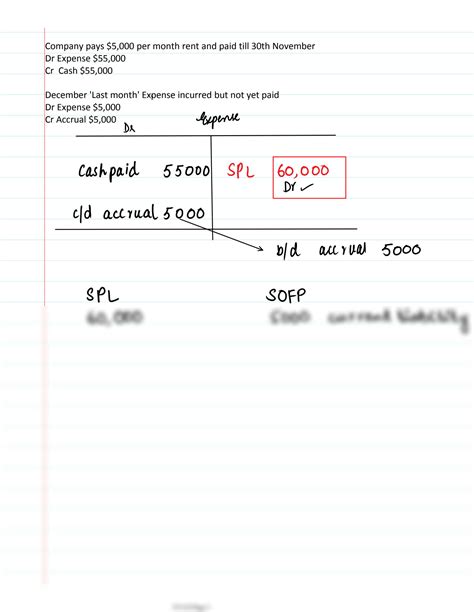 Company pays $5,000 per month rent and paid till 30th November
Dr Expense $55,000
Cr Cash $55,000
December 'Last month' Expense incurred but not yet paid
Dr Expense $5,000
Cr Accrual $5,000
Dr Expense
Cash paid 55000 SPL 60,000
Dr ✓
c/d accrual 5000
b/d accrual 5000
SPL SOFP
60,000 5000 current liability